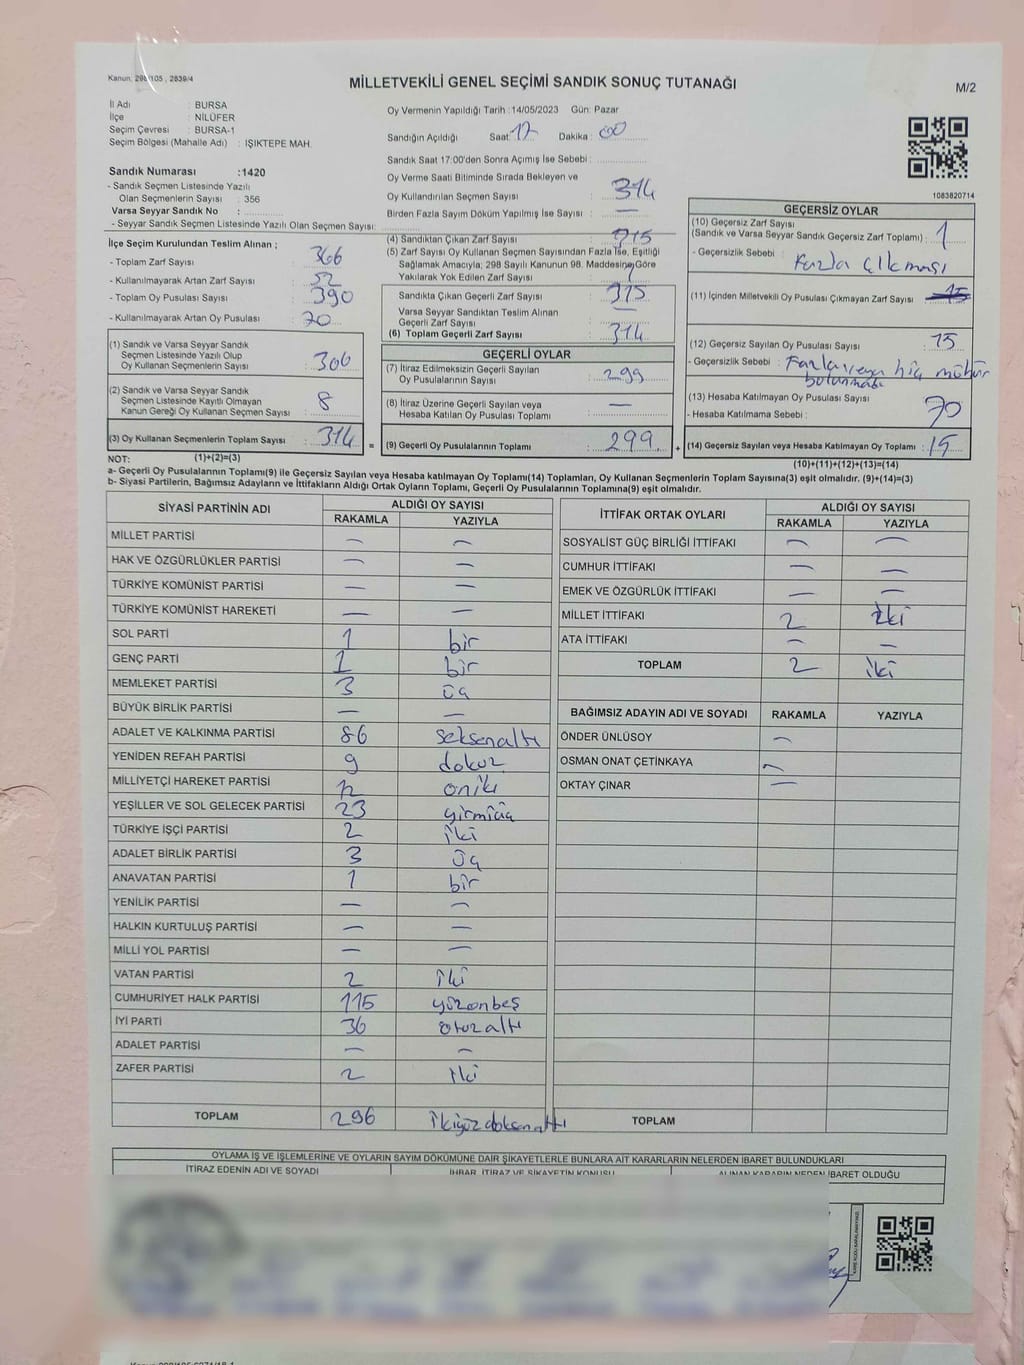 Kanun: 298/105 , 2839/4
MİLLETVEKİLİ GENEL SEÇİMİ SANDIK SONUÇ TUTANAĞI
M/2
İl Adı : BURSA
İlçe : NİLÜFER
Seçim Çevresi : BURSA-1
Seçim Bölgesi (Mahalle Adı) : IŞIKTEPE MAH.
Sandık Numarası :1420
- Sandık Seçmen Listesinde Yazılı
Olan Seçmenlerin Sayısı : 356
Varsa Seyyar Sandık No :
- Seyyar Sandık Seçmen Listesinde Yazılı Olan Seçmen Sayısı:
Oy Vermenin Yapıldığı Tarih :14/05/2023 Gün: Pazar
Sandığın Açıldığı Saat:17 Dakika: 00
Sandık Saat 17:00'den Sonra Açımış İse Sebebi :
Oy Verme Saati Bitiminde Sırada Bekleyen ve
Oy Kullandırılan Seçmen Sayısı : 314
Birden Fazla Sayım Döküm Yapılmış İse Sayısı : —
1083820714
İlçe Seçim Kurulundan Teslim Alınan ;
- Toplam Zarf Sayısı : 366
- Kullanılmayarak Artan Zarf Sayısı : 52
- Toplam Oy Pusulası Sayısı : 390
- Kullanılmayarak Artan Oy Pusulası : 70
(1) Sandık ve Varsa Seyyar Sandık
Seçmen Listesinde Yazılı Olup
Oy Kullanan Seçmenlerin Sayısı : 306
(2) Sandık ve Varsa Seyyar Sandık
Seçmen Listesinde Kayıtlı Olmayan
Kanun Gereği Oy Kullanan Seçmen Sayısı : 8
(3) Oy Kullanan Seçmenlerin Toplam Sayısı : 314
(4) Sandıktan Çıkan Zarf Sayısı : 315
(5) Zarf Sayısı Oy Kullanan Seçmen Sayısından Fazla İse, Eşitliği
Sağlamak Amacıyla, 298 Sayılı Kanunun 98. Maddesine Göre
Yakılarak Yok Edilen Zarf Sayısı : 1
Sandıkta Çıkan Geçerli Zarf Sayısı : 315
Varsa Seyyar Sandıktan Teslim Alınan
Geçerli Zarf Sayısı : —
(6) Toplam Geçerli Zarf Sayısı : 314
GEÇERLİ OYLAR
(7) İtiraz Edilmeksizin Geçerli Sayılan
Oy Pusulalarının Sayısı : 299
(8) İtiraz Üzerine Geçerli Sayılan veya
Hesaba Katılan Oy Pusulası Toplamı : —
= (9) Geçerli Oy Pusulalarının Toplamı : 299 +
GEÇERSİZ OYLAR
(10) Geçersiz Zarf Sayısı
(Sandık ve Varsa Seyyar Sandık Geçersiz Zarf Toplamı) : 1
- Geçersizlik Sebebi : Fazla çıkması
(11) İçinden Milletvekili Oy Pusulası Çıkmayan Zarf Sayısı :
(12) Geçersiz Sayılan Oy Pusulası Sayısı : 15
- Geçersizlik Sebebi : Fazla veya hiç mühür
bulunması
(13) Hesaba Katılmayan Oy Pusulası Sayısı : 70
- Hesaba Katılmama Sebebi :
(14) Geçersiz Sayılan veya Hesaba Katılmayan Oy Toplamı : 15
NOT: (1)+(2)=(3)
(10)+(11)+(12)+(13)=(14)
a- Geçerli Oy Pusulalarının Toplamı(9) ile Geçersiz Sayılan veya Hesaba katılmayan Oy Toplamı(14) Toplamları, Oy Kullanan Seçmenlerin Toplam Sayısına(3) eşit olmalıdır. (9)+(14)=(3)
b- Siyasi Partilerin, Bağımsız Adayların ve İttifakların Aldığı Ortak Oyların Toplamı, Geçerli Oy Pusulalarının Toplamına(9) eşit olmalıdır.
SİYASİ PARTİNİN ADI ALDIĞI OY SAYISI
RAKAMLA YAZIYLA
MİLLET PARTİSİ — —
HAK VE ÖZGÜRLÜKLER PARTİSİ — —
TÜRKİYE KOMÜNİST PARTİSİ — —
TÜRKİYE KOMÜNİST HAREKETİ — —
SOL PARTİ 1 bir
GENÇ PARTİ 1 bir
MEMLEKET PARTİSİ 3 üç
BÜYÜK BİRLİK PARTİSİ — —
ADALET VE KALKINMA PARTİSİ 86 seksenaltı
YENİDEN REFAH PARTİSİ 9 dokuz
MİLLİYETÇİ HAREKET PARTİSİ 12 oniki
YEŞİLLER VE SOL GELECEK PARTİSİ 23 yirmiüç
TÜRKİYE İŞÇİ PARTİSİ 2 iki
ADALET BİRLİK PARTİSİ 3 üç
ANAVATAN PARTİSİ 1 bir
YENİLİK PARTİSİ — —
HALKIN KURTULUŞ PARTİSİ — —
MİLLİ YOL PARTİSİ — —
VATAN PARTİSİ 2 iki
CUMHURİYET HALK PARTİSİ 115 yüzonbeş
İYİ PARTİ 36 otuzaltı
ADALET PARTİSİ — —
ZAFER PARTİSİ 2 iki
TOPLAM 296 ikiyüzdoksanaltı
İTTİFAK ORTAK OYLARI ALDIĞI OY SAYISI
RAKAMLA YAZIYLA
SOSYALİST GÜÇ BİRLİĞİ İTTİFAKI — —
CUMHUR İTTİFAKI — —
EMEK VE ÖZGÜRLÜK İTTİFAKI — —
MİLLET İTTİFAKI 2 iki
ATA İTTİFAKI — —
TOPLAM 2 iki
BAĞIMSIZ ADAYIN ADI VE SOYADI RAKAMLA YAZIYLA
ÖNDER ÜNLÜSOY —
OSMAN ONAT ÇETİNKAYA —
OKTAY ÇINAR —
TOPLAM
OYLAMA İŞ VE İŞLEMLERİNE VE OYLARIN SAYIM DÖKÜMÜNE DAİR ŞİKAYETLERLE BUNLARA AİT KARARLARIN NELERDEN İBARET BULUNDUKLARI
İTİRAZ EDENİN ADI VE SOYADI İHBAR, İTİRAZ VE ŞİKAYETİN KONUSU ALINAN KARARIN NEDEN İBARET OLDUĞU